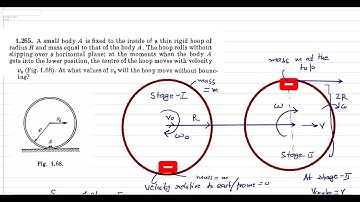 1.265. A small body A is fixed to the inside of a thin rigid hoop of
radius R and mass equal to that of the body A. The hoop rolls without
slipping over a horizontal plane; at the moments when the body A
gets into the lower position, the centre of the hoop moves with velocity
v₀ (Fig. 1.68). At what values of v₀ will the hoop move without bounc-
ing?
v₀
Fig. 1.68.
mass
= m
Stage-I
R
v₀
ω₀
mass = m
velocity relative to
= 0
mass m at the
top
2R
ω
V
Stage-II
At stage-II